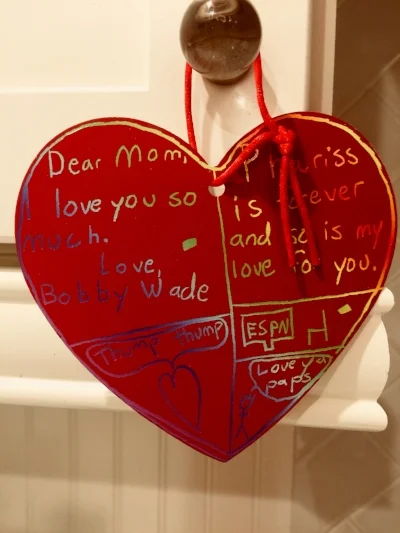 Dear Mom,
I love you so
much.
Love,
Bobby Wade
Thump thump
is forever
and so is my
love for you.
ESPN
Love ya
paps